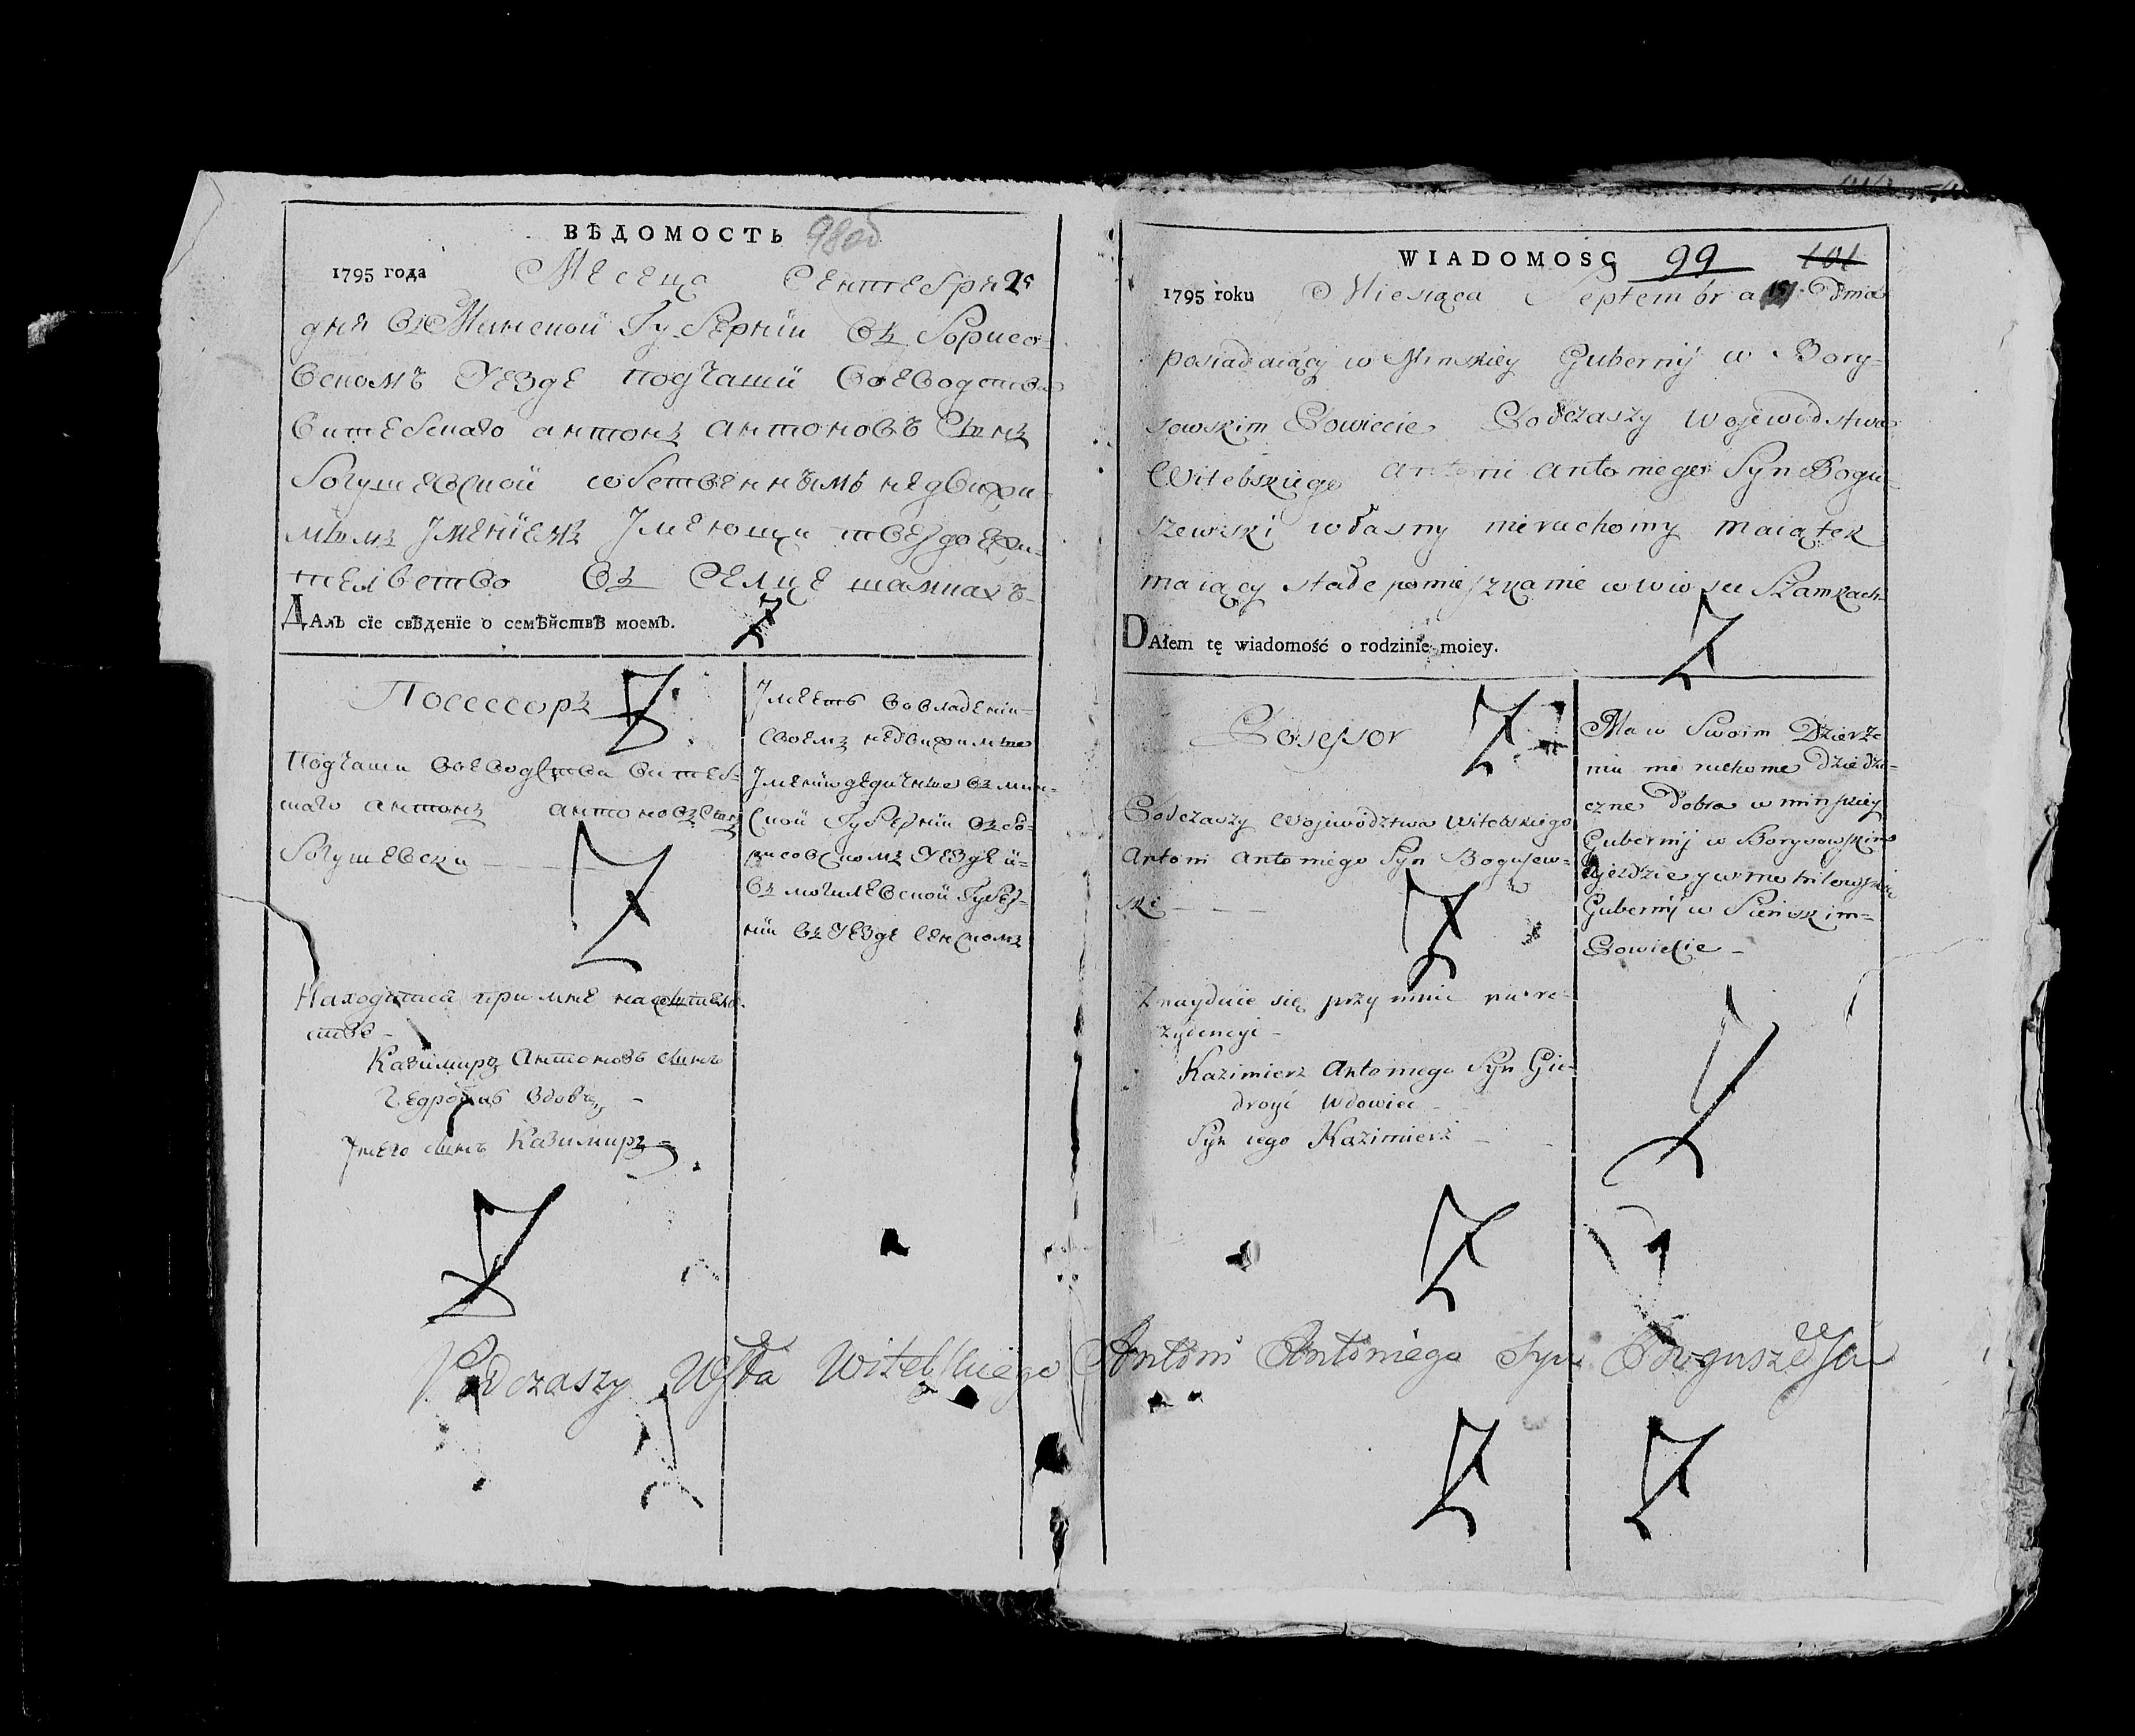 ВѢДОМОСТЬ 98об
1795 года Месеца Сентебря
дня въ Минской Губернїи въ Борисо-
вскомъ уезде подчаший воеводства
витебскаго антонъ антоновъ Сынъ
богушевской собственнымъ недвижи-
мымъ Имениемъ Имеющи
въ селце шамках-
ДАлъ сїе свѣденїе о семѣйствѣ моемъ.
Посессоръ
Подчаши воеводства витеб-
скаго антонъ антоновъ Сынъ
богушевски
Находится при мне на
стве -
Казимиръ Антоновъ сынъ
Гедройць вдовец -
У него сынъ Казимиръ -
Имеетъ во владении-
своемъ недвижимые
Имении дедичные въ мин-
ской Губернїи въ бо-
рисовскомъ уезде и-
въ могилевской Губер-
нїи въ уезде сенскомъ
WIADOMOSC 99 101
1795 roku Miesiąca Septembra Dnia
posiadaiący w Minskiey Gubernij w Bory-
sowskim Powiecie Podczaszy Wojewodstwa
Witebskiego Antoni Antoniego Syn Bogu-
szewski własny nieruchomy maiątek
maiący stałe pomieszkanie w wiosce Szamkach
DAłem tę wiadomość o rodzinie moiey.
Posessor
Podczaszy Województwa Witebskiego
Antoni Antoniego Syn Bogusew-
ski
Znayduie się przy mnie na re-
zydencyi -
Kazimierz Antoniego Syn Gie-
droyć Wdowiec -
Syn iego Kazimierz -
Ma w Swoim Dzierże
niu nie ruchome dziedzi-
czne Dobra w minskiey
Gubernij w Borysowskim
Ujezdzie y w mohilowskiey
Gubernij w Sieńskim-
Powiecie -
Podczaszy Wstwa Witebskiego Antoni Antoniego Syn Boguszewski